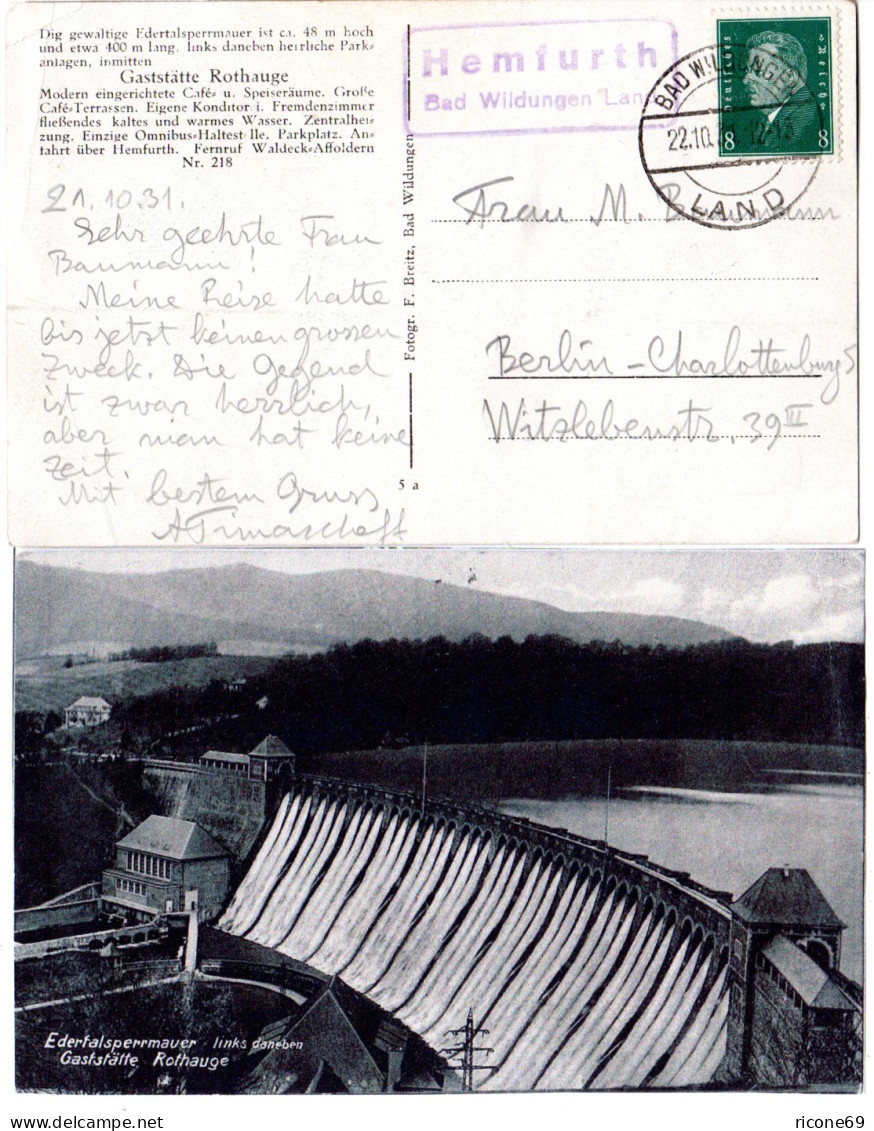 Dig gewaltige Edertalsperrmauer ist ca. 48 m hoch
und etwa 400 m lang. links daneben herrliche Park-
anlagen, inmitten
Gaststätte Rothauge
Modern eingerichtete Café- u. Speiseräume. Große
Café-Terrassen. Eigene Konditor i. Fremdenzimmer
fließendes kaltes und warmes Wasser. Zentralhei-
zung. Einzige Omnibus-Haltest lle. Parkplatz. An-
fahrt über Hemfurth. Fernruf Waldeck-Affoldern
Nr. 218
21.10.31.
Sehr geehrte Frau
Baumann!
Meine Reise hatte
bis jetzt keinen grossen
Zweck. Die Gegend
ist zwar herrlich,
aber man hat keine
Zeit.
Mit bestem Gruss
Fotogr. F. Breitz, Bad Wildungen
5 a
Hemfurth
Bad Wildungen Land
BAD WILDUNGEN
22.10. 12-13
LAND
Deutsches Reich
8 8
Frau M. Baumann
Berlin-Charlottenburg 5
Witzlebenstr. 39 III
Edertalsperrmauer links daneben
Gaststätte Rothauge
delcampe.net
ricone69